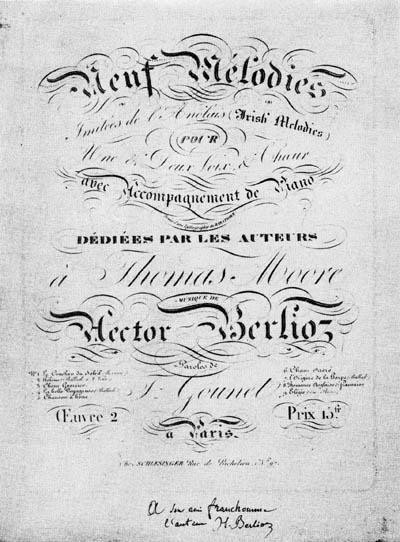 Neuf Mélodies
Imitées de l'Anglais (Irish Melodies)
POUR
Une & Deux Voix, & Chœur
avec Accompagnement de Piano
DÉDIÉES PAR LES AUTEURS
à Thomas Moore
MUSIQUE DE
Hector Berlioz
Paroles de
T. Gounet
Nº 1 Le Coucher du Soleil
2 Hélène (Ballade à 2 Voix)
3 Chant Guerrier
4 La belle Voyageuse (Ballade)
5 Chanson à boire
6 Chant Sacré
7 L'Origine de la Harpe (Ballade)
9 Elégie
Œuvre 2
Prix 15fr
à Paris.
Chez SCHLESINGER Rue de Richelieu, Nº 97.
A son ami franchomme
l'auteur H. Berlioz